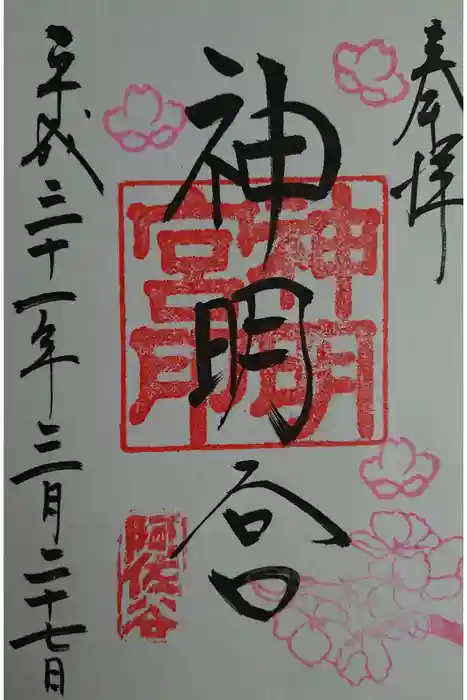 奉拝
神明宮
神明
宮印
阿佐谷
平成三十一年三月二十七日